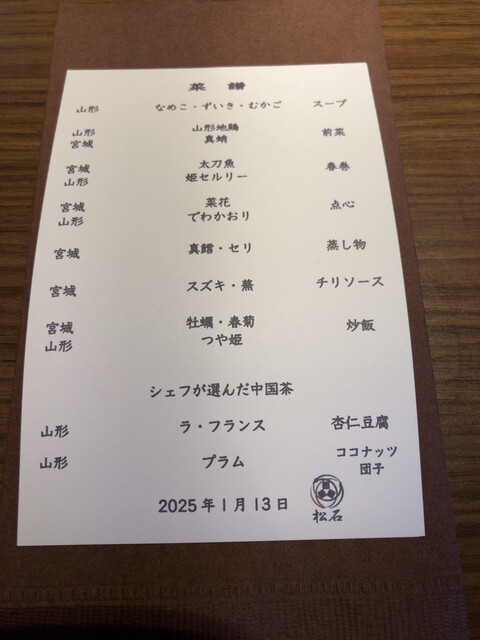 菜譜
山形 なめこ・ずいき・むかご スープ
山形 山形地鶏 前菜
宮城 真蛸
宮城 太刀魚 春巻
山形 姫セルリー
宮城 菜花 点心
山形 でわかおり
宮城 真鱈・セリ 蒸し物
宮城 スズキ・蕪 チリソース
宮城 牡蠣・春菊 炒飯
山形 つや姫
シェフが選んだ中国茶
山形 ラ・フランス 杏仁豆腐
山形 プラム ココナッツ
団子
2025年1月13日
松石